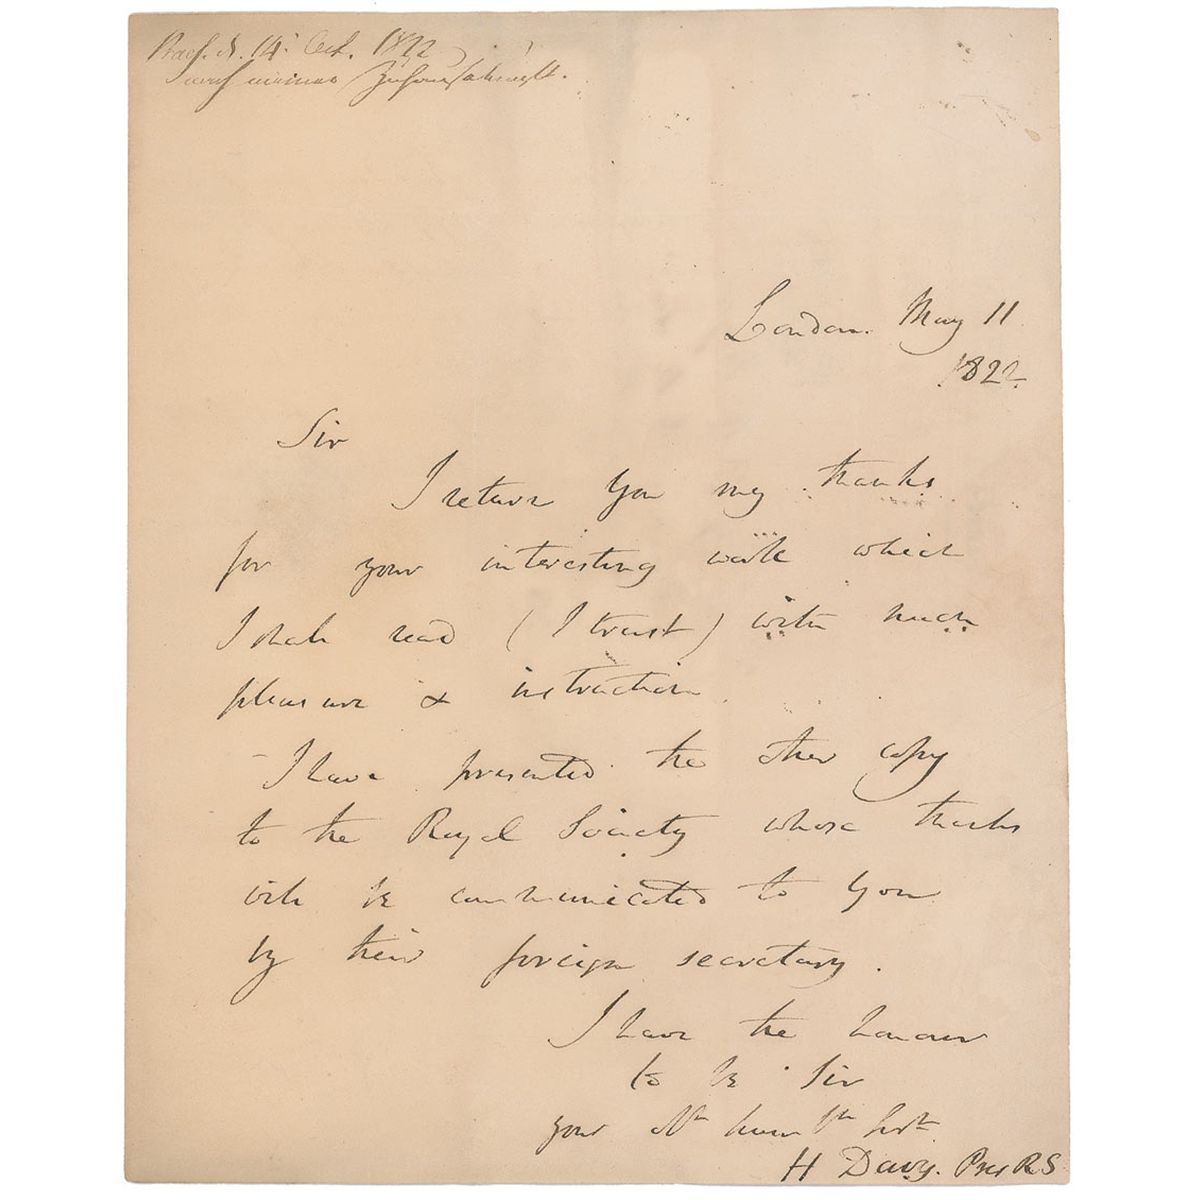 d. 14 Oct. 1822
nach meiner
London. May 11
1822.
Sir
I return you my thanks
for your interesting work which
I shall read (I trust) with much
pleasure & instruction
– I have presented the other copy
to the Royal Society whose thanks
will be communicated to you
by their foreign secretary.
I have the honour
to be Sir
your obt humble Servt
H Davy. Pres RS